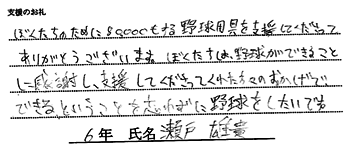 支援のお礼
ぼくたちのために80000もする野球用具を支援してくださって
ありがとうございます。ぼくたちは、野球ができること
に感謝し、支援してくださってくれた方々のおかげで
できるということを忘れずに野球をしたいです
6年 氏名 瀬戸 雄貴